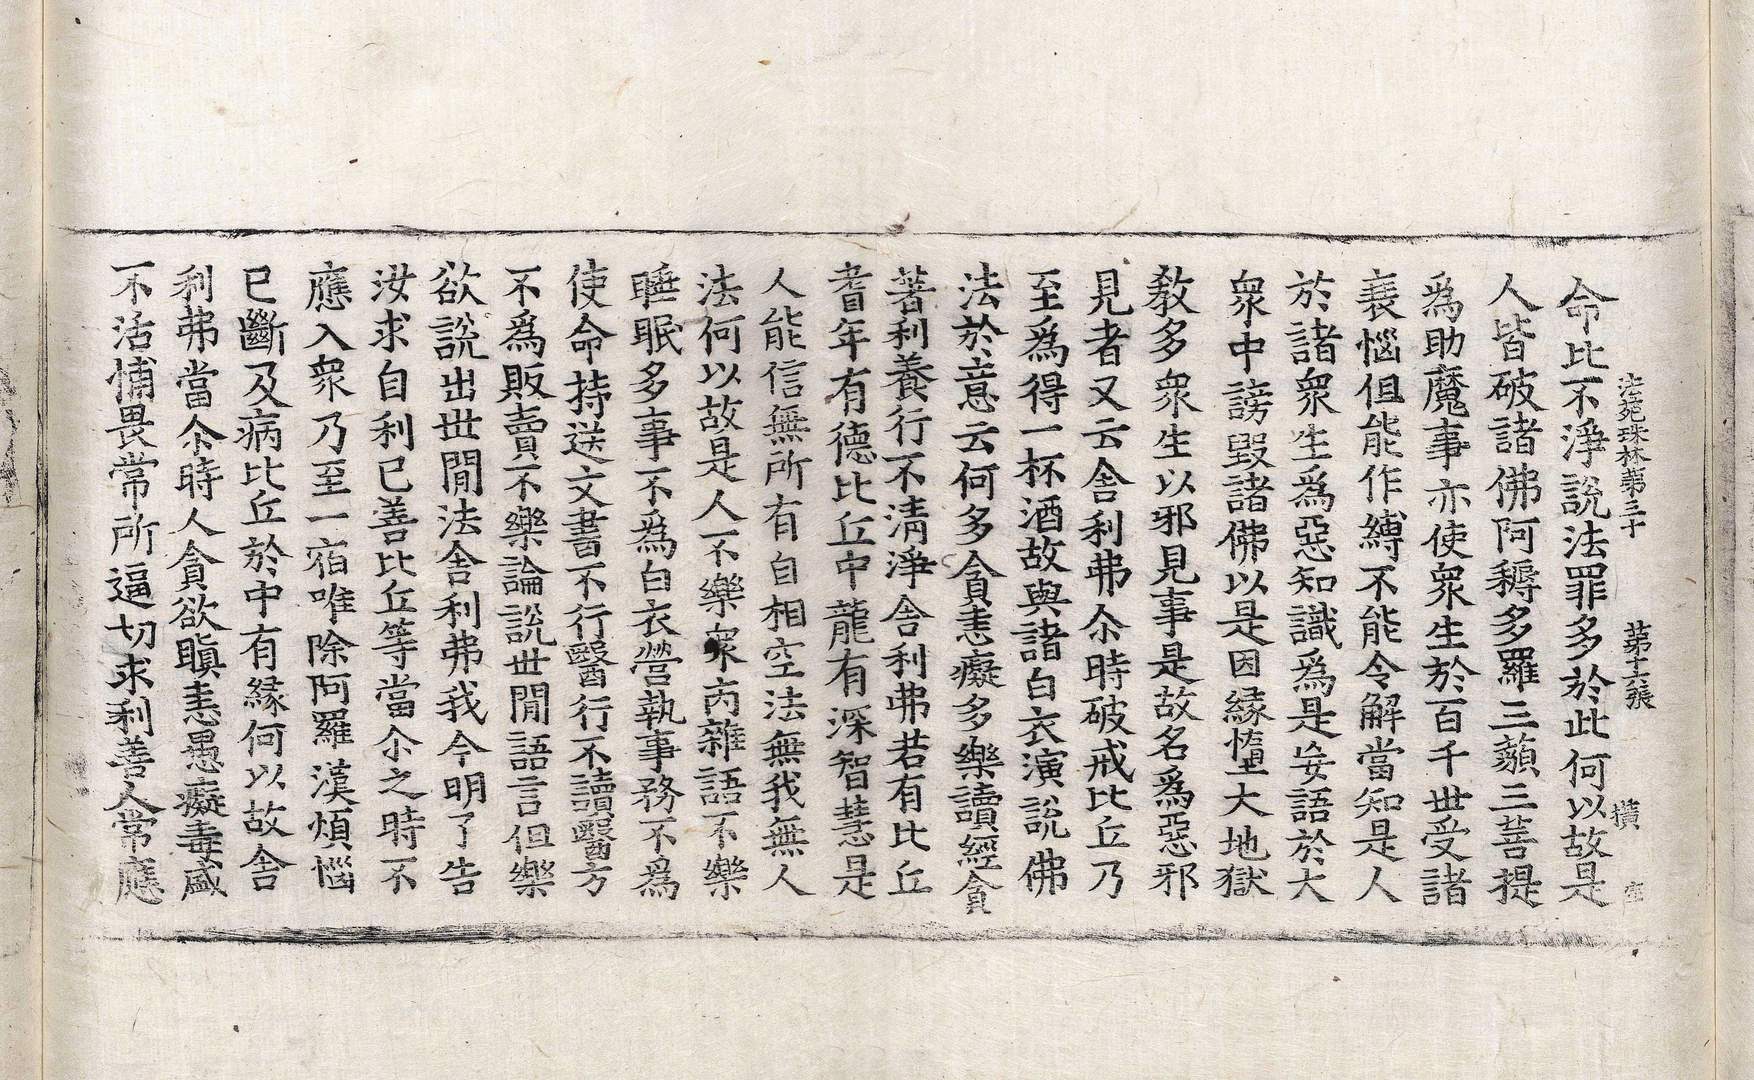 法苑珠林第三十　第十六張　橫
命比不淨說法罪多於此何以故是
人皆破諸佛阿耨多羅三藐三菩提
為助魔事亦使眾生於百千世受諸
衰惱但能作縛不能令解當知是人
於諸眾生為惡知識為是妄語於大
眾中謗毀諸佛以是因緣墮大地獄
教多眾生以邪見事是故名為惡邪
見者又云舍利弗尒時破戒比丘乃
至為得一杯酒故與諸白衣演說佛
法於意云何多貪恚癡多樂讀經貪
著利養行不清淨舍利弗若有比丘
耆年有德比丘中龍有深智慧是
人能信無所有自相空法無我無人
法何以故是人不樂眾鬧雜語不樂
睡眠多事不為白衣營執事務不為
使命持送文書不行醫行不讀醫方
不為販賣不樂論說世閒語言但樂
欲說出世閒法舍利弗我今明了告
汝求自利已善比丘等當尒之時不
應入眾乃至一宿唯除阿羅漢煩惱
已斷及病比丘於中有緣何以故舍
利弗當尒時人貪欲瞋恚愚癡毒盛
不活怖畏常所逼切求利善人常應